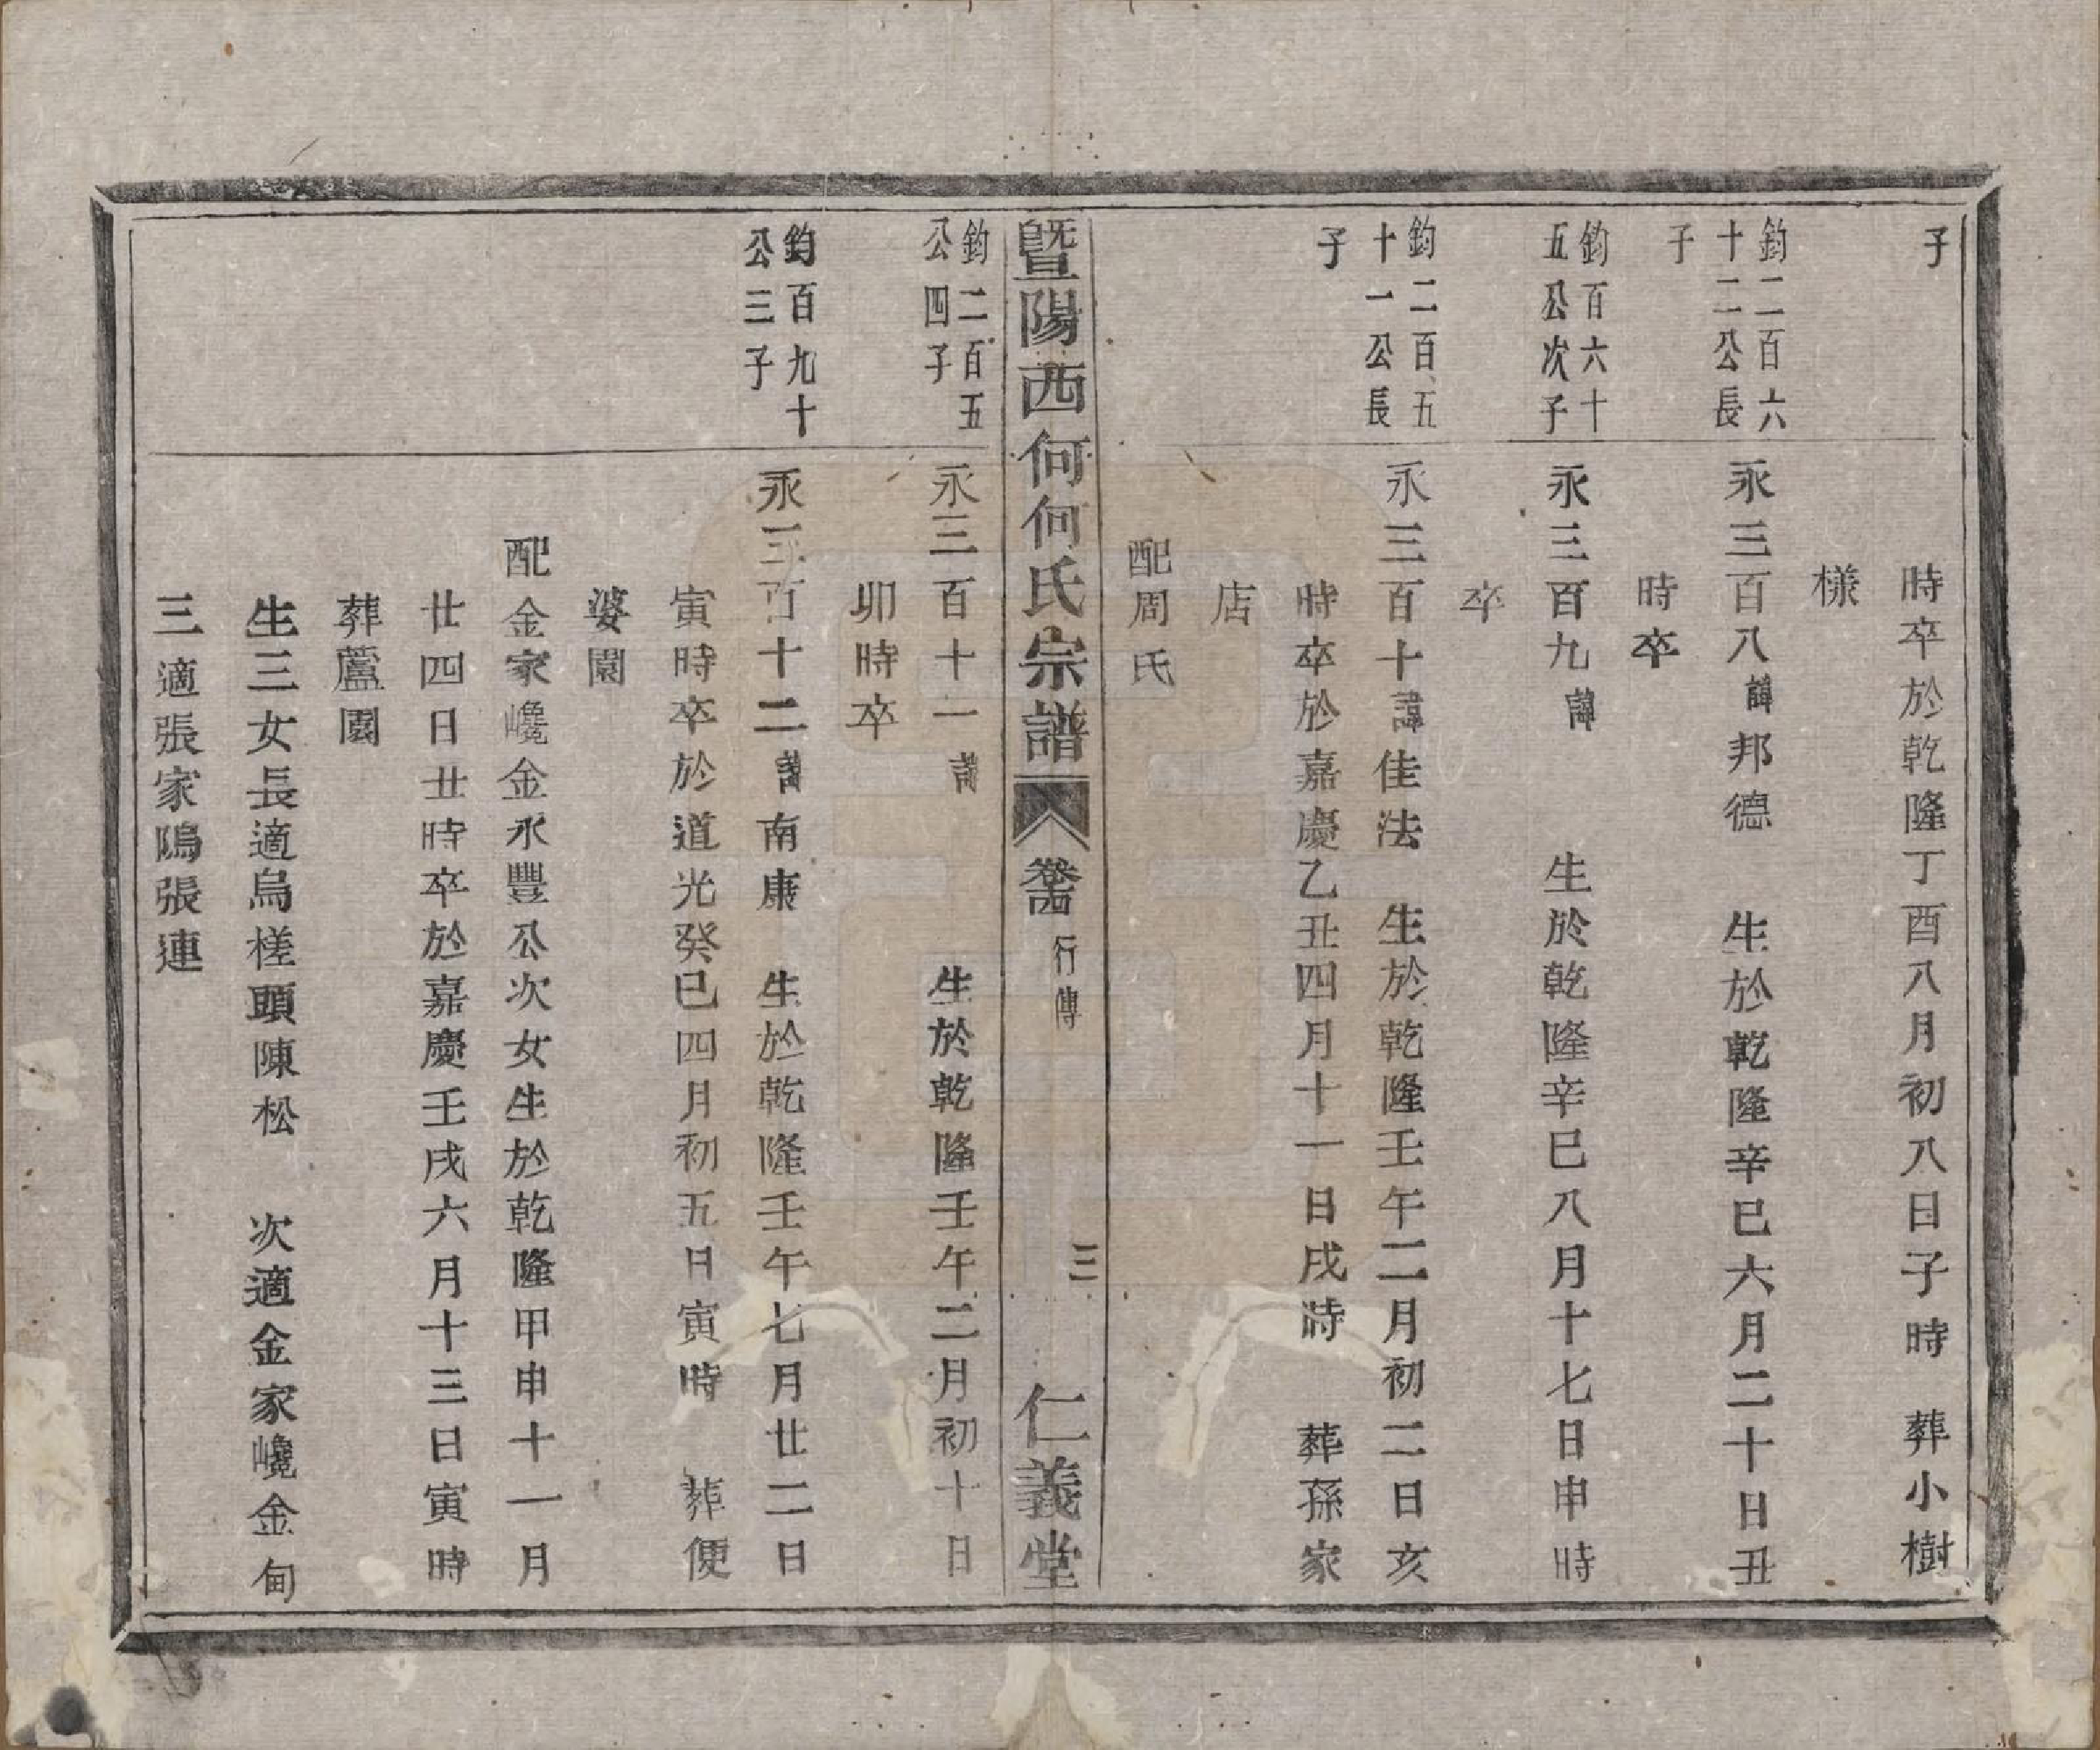 子
時卒於乾隆丁酉八月初八日子時 葬小樹
樣
鈞二百六
十二公長
子
永三百八諱邦德 生於乾隆辛巳六月二十日丑
時卒
鈞百六十
五公次子
永三百九諱 生於乾隆辛巳八月十七日申時
卒
鈞二百五
十一公長
子
永三百十諱佳法 生於乾隆壬午二月初二日亥
時卒於嘉慶乙丑四月十一日戌時 葬孫家
店
配周氏
暨陽西何何氏宗譜 卷四 行傳 三 仁義堂
鈞二百五
公四子
永三百十一諱 生於乾隆壬午二月初十日
卯時卒
鈞百九十
公三子
永三百十二諱南康 生於乾隆壬午七月廿二日
寅時卒於道光癸巳四月初五日寅時 葬便
婆園
配金家巉金永豐公次女生於乾隆甲申十一月
廿四日丑時卒於嘉慶壬戌六月十三日寅時
葬蘆園
生三女長適烏槎頭陳松 次適金家巉金甸
三適張家隖張連